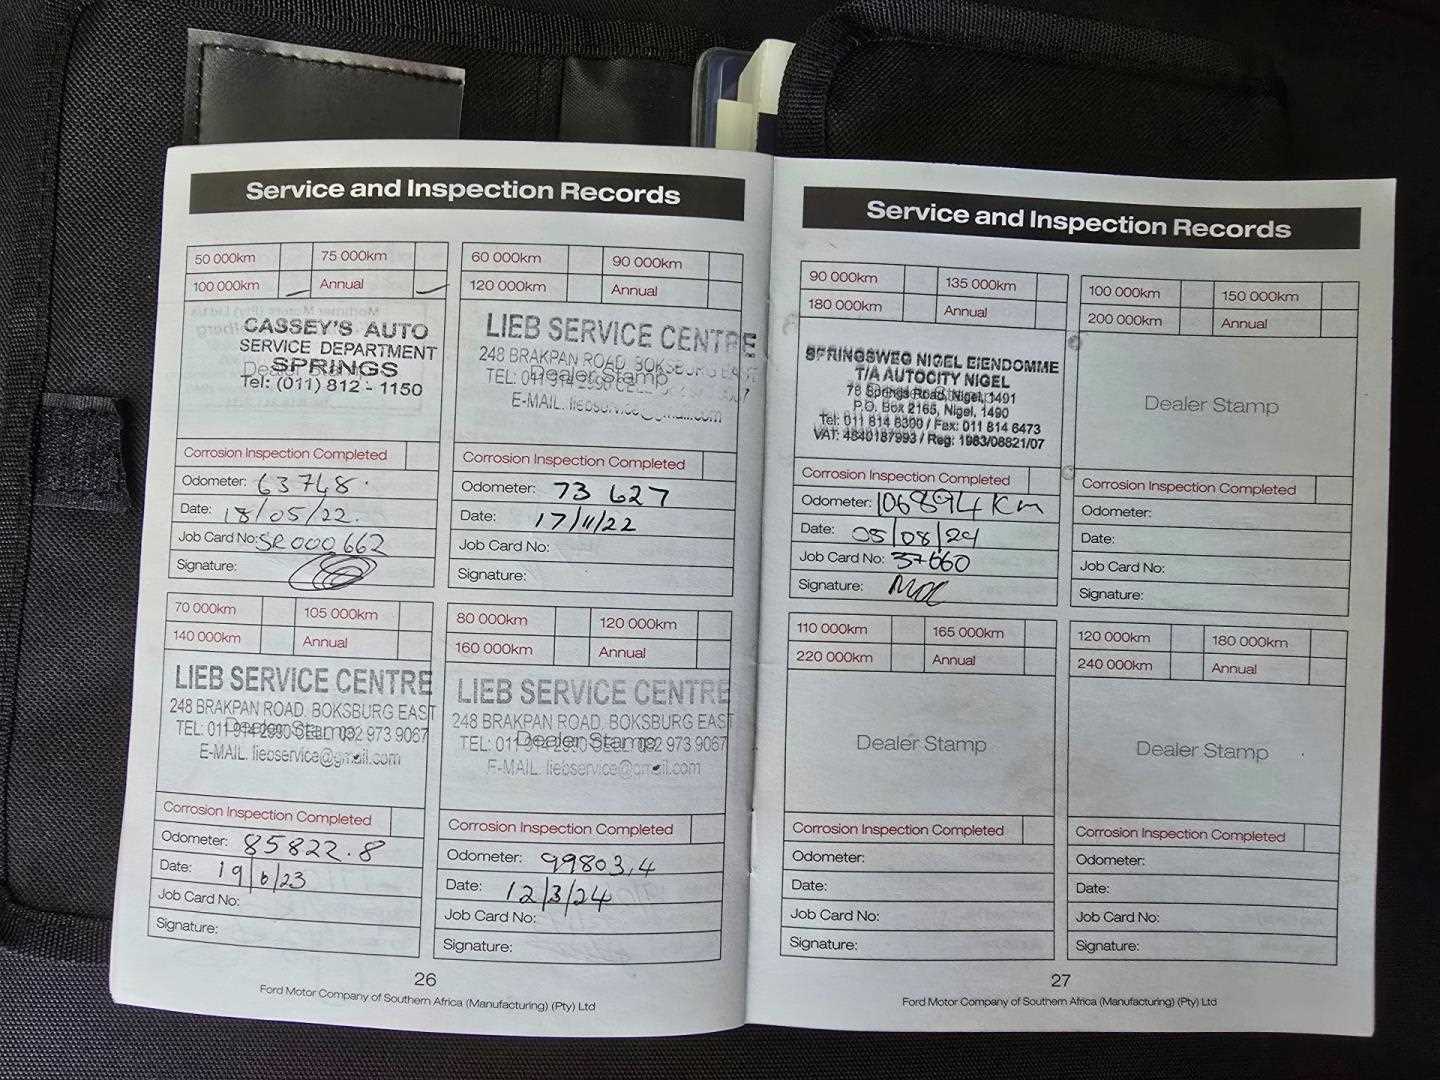 Service and Inspection Records
50 000km 75 000km
100 000km Annual
CASSEY'S AUTO
SERVICE DEPARTMENT
SPRINGS
Tel: (011) 812 - 1150
Corrosion Inspection Completed
Odometer: 63748
Date: 18/05/22
Job Card No: SR000662
Signature:
60 000km 90 000km
120 000km Annual
LIEB SERVICE CENTRE
248 BRAKPAN ROAD, BOKSBURG EAST
Dealer Stamp
E-MAIL. liebservice@gmail.com
Corrosion Inspection Completed
Odometer: 73 627
Date: 17/11/22
Job Card No:
Signature:
70 000km 105 000km
140 000km Annual
LIEB SERVICE CENTRE
248 BRAKPAN ROAD, BOKSBURG EAST
TEL: 011 914 2990 CELL 082 973 9067
Dealer Stamp
E-MAIL. liebservice@gmail.com
Corrosion Inspection Completed
Odometer: 85822.8
Date: 19/6/23
Job Card No:
Signature:
80 000km 120 000km
160 000km Annual
LIEB SERVICE CENTRE
248 BRAKPAN ROAD, BOKSBURG EAST
TEL: 011 914 2990 CELL 082 973 9067
Dealer Stamp
E-MAIL. liebservice@gmail.com
Corrosion Inspection Completed
Odometer: 99803,4
Date: 12/3/24
Job Card No:
Signature:
26
Ford Motor Company of Southern Africa (Manufacturing) (Pty) Ltd
Service and Inspection Records
90 000km 135 000km
180 000km Annual
SPRINGSWEG NIGEL EIENDOMME
T/A AUTOCITY NIGEL
78 Springs Road, Nigel, 1491
P.O. Box 2165, Nigel, 1490
Tel: 011 814 8300 / Fax: 011 814 6473
VAT: 4840187993 / Reg: 1983/08821/07
Corrosion Inspection Completed
Odometer: 106894 Km
Date: 05/08/24
Job Card No: 37660
Signature:
100 000km 150 000km
200 000km Annual
Dealer Stamp
Corrosion Inspection Completed
Odometer:
Date:
Job Card No:
Signature:
110 000km 165 000km
220 000km Annual
Dealer Stamp
Corrosion Inspection Completed
Odometer:
Date:
Job Card No:
Signature:
120 000km 180 000km
240 000km Annual
Dealer Stamp
Corrosion Inspection Completed
Odometer:
Date:
Job Card No:
Signature:
27
Ford Motor Company of Southern Africa (Manufacturing) (Pty) Ltd